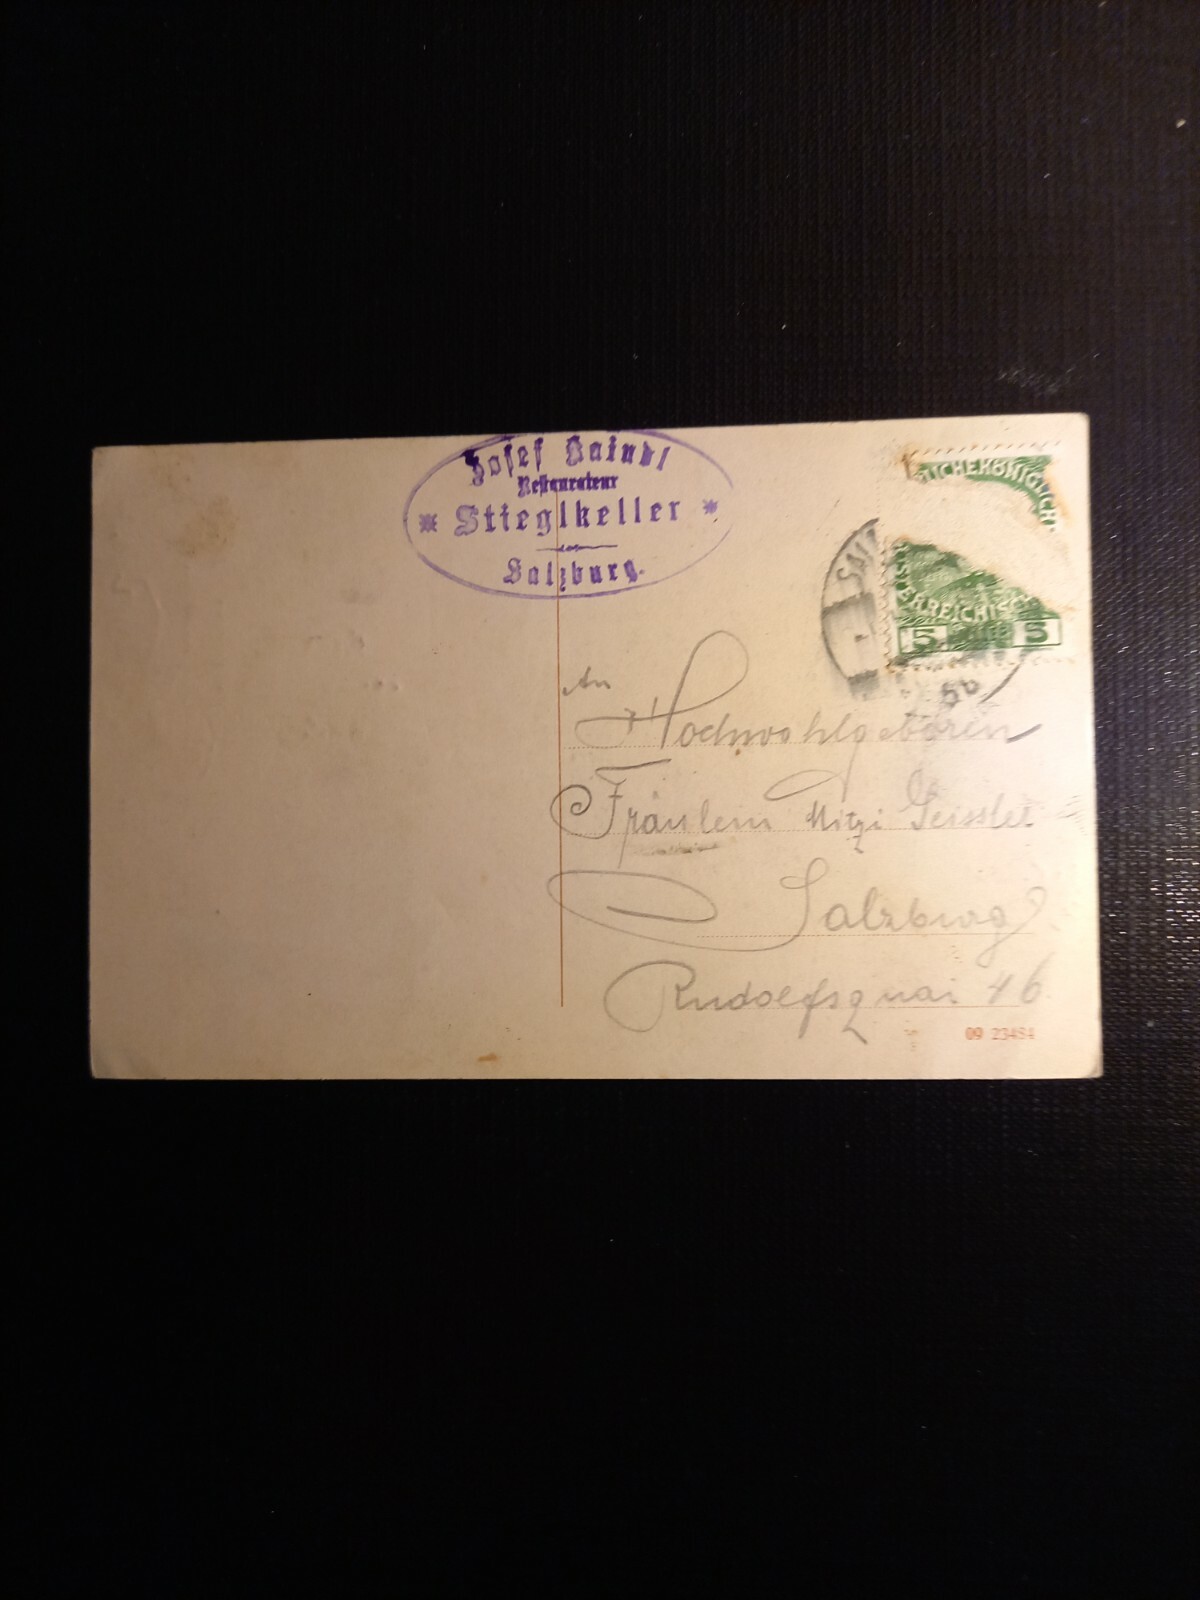 Josef Baindl
Restaurateur
Stieglkeller
Salzburg.
LICHEKÖNIGLICH
SAL
ERREICHISC
5 5
5b
An
Hochwohlgeboren
Fräulein Mitzi Geissler
Salzburg
Rudolfsquai 46
09 23484